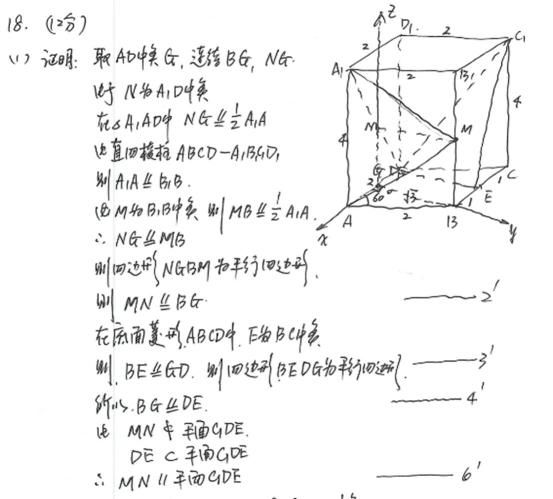 18. (12分)
(1) 证明: 取AD中点G, 连结BG, NG.
由于 N为A₁D中点
在△A₁AD中 NG⫽½A₁A
由直四棱柱ABCD-A₁B₁C₁D₁
则A₁A⫽B₁B.
由M为B₁B中点 则 MB⫽½A₁A.
∴ NG⫽MB
则四边形NGBM为平行四边形.
则 MN⫽BG. 2'
在底面菱形ABCD中, E为BC中点
则, BE⫽GD. 则四边形BEDG为平行四边形. 3'
所以, BG⫽DE. 4'
由 MN⊄平面C₁DE.
DE⊂平面C₁DE
∴ MN∥平面C₁DE 6'
z
D₁
2
C₁
2
A₁
2
B₁
4
N
M
4
G
D
C
2
60°
√3
1
E
1
A
2
B
x
y